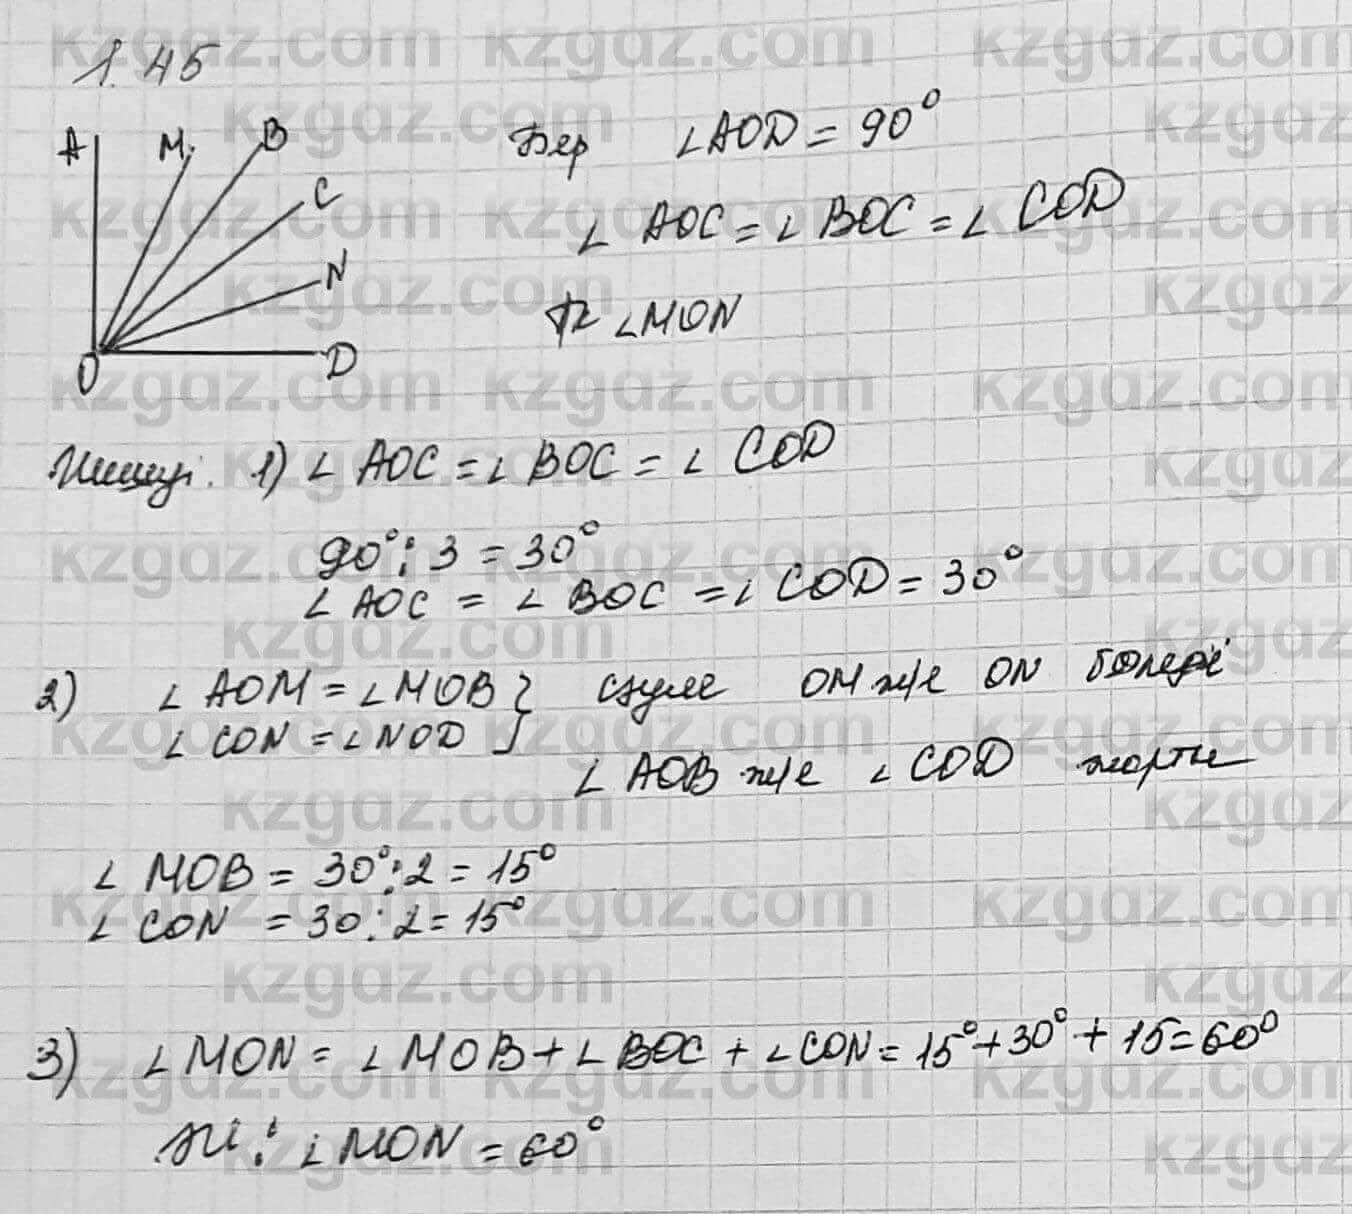 1.45
A M B C N D O
Бер ∠AOD = 90°
∠AOC = ∠BOC = ∠COD
Т/к ∠MON
Шешуі. 1) ∠AOC = ∠BOC = ∠COD
90° : 3 = 30°
∠AOC = ∠BOC = ∠COD = 30°
2) ∠AOM = ∠MOB } сәуле OM ж/е ON бөледі
∠CON = ∠NOD
∠AOB ж/е ∠COD
∠MOB = 30° : 2 = 15°
∠CON = 30 : 2 = 15°
3) ∠MON = ∠MOB + ∠BOC + ∠CON = 15° + 30° + 15 = 60°
: ∠MON = 60°
kzgdz.com